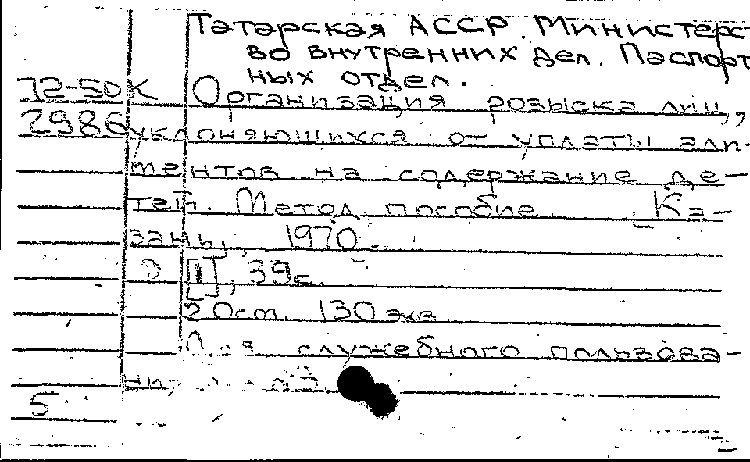 Татарская АССР. Министерст-
во внутренних дел. Паспорт-
ных отдел.
72-50К Организация розыска лиц,
2986 уклоняющихся от уплаты али-
ментов на содержание де-
тей. Метод. пособие. Ка-
зань, 1970.
[1], 39с.
20см. 130 экз.
Для служебного пользова-
5